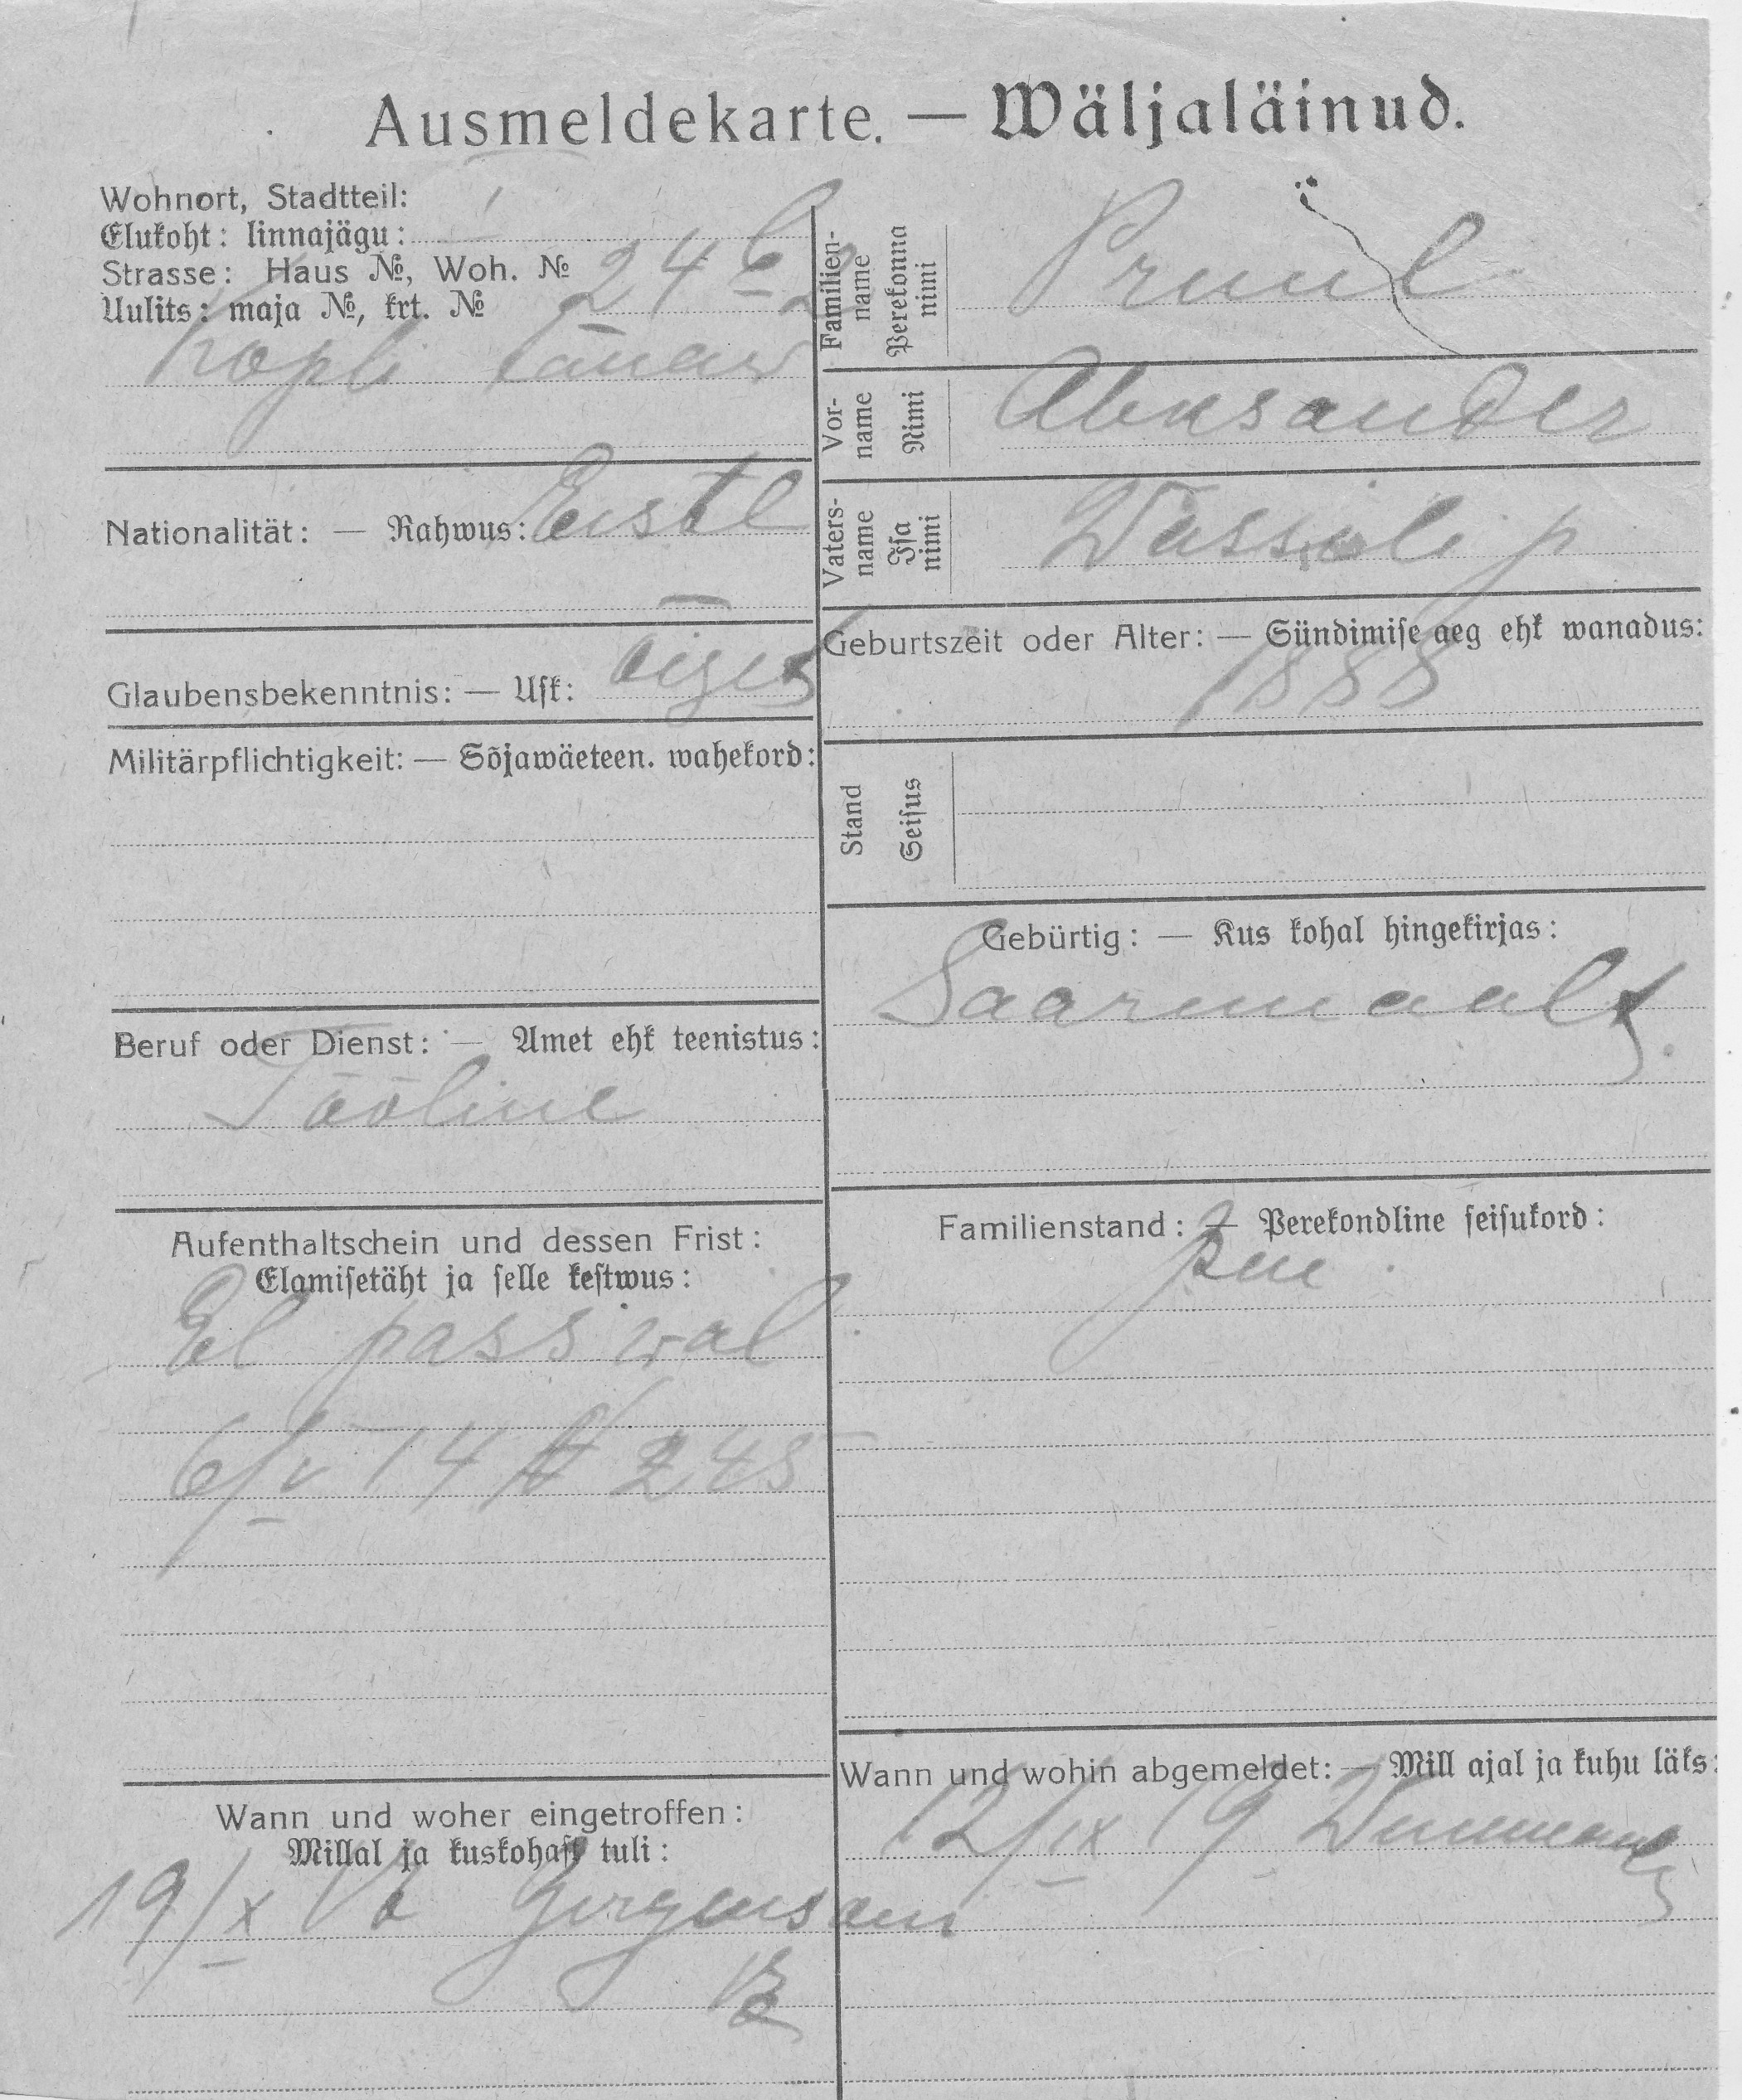 Ausmeldekarte. — Wäljaläinud.
Wohnort, Stadtteil:
Elukoht: linnajägu:
Strasse: Haus №, Woh. № 24
Uulits: maja №, krt. №
Kopli tänaw
Nationalität: — Rahwus: Eestl
Glaubensbekenntnis: — Usk: õigeu
Militärpflichtigkeit: — Sõjawäeteen. wahekord:
Beruf oder Dienst: — Amet ehk teenistus:
Tööline
Aufenthaltschein und dessen Frist:
Elamisetäht ja selle kestwus:
El pass wal
6/V 14 № 245
Wann und woher eingetroffen:
Millal ja kuskohast tuli:
19/X
Familien-
name
Perekonna
nimi
Pruul
Vor-
name
Nimi
Aleksander
Vaters-
name
Isa
nimi
Wassili p
Geburtszeit oder Alter: — Sündimise aeg ehk wanadus:
1888
Stand
Seisus
Gebürtig: — Kus kohal hingekirjas:
Saaremaalt
Familienstand: — Perekondline seisukord:
Wann und wohin abgemeldet: — Mill ajal ja kuhu läks:
12/IX 19